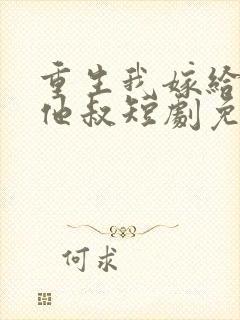 重生我嫁给
他叔短劇免
何求